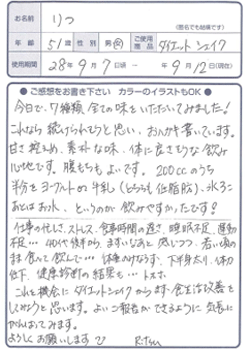 お名前 りつ
(匿名でも結構です)
年齢 51歳 性別 男・女 ご使用商品 ダイエットシェイク
使用期間 28年9月7日頃〜 年9月12日(現在)
●ご感想をお書き下さい カラーのイラストもOK●
今日で、7種類全ての味をいただいてみました!
これなら続けられそうと思い、おハガキ書いています。
甘さ控えめ、素朴な味、体に良さそうな飲み
心地です。腹もちもよいです。200ccのうち
半分をヨーグルトか牛乳(どちらも低脂肪)、水を
あとはお水、というのが飲みやすかったです!
仕事の忙しさ、ストレス、食事時間の遅さ、睡眠不足、運動
不足… 40代後半から、まずいなあと感じつつ、若い頃の
まま食べて飲んで… 体重のけたちがう、下半身太り、体力
低下、健康診断の結果も… トホホ。
これを機会にダイエットシェイクから、食生活改善を
しようと思います。よいご報告ができるように気長に
がんばってみます。
よろしくお願いします
R.Tsu